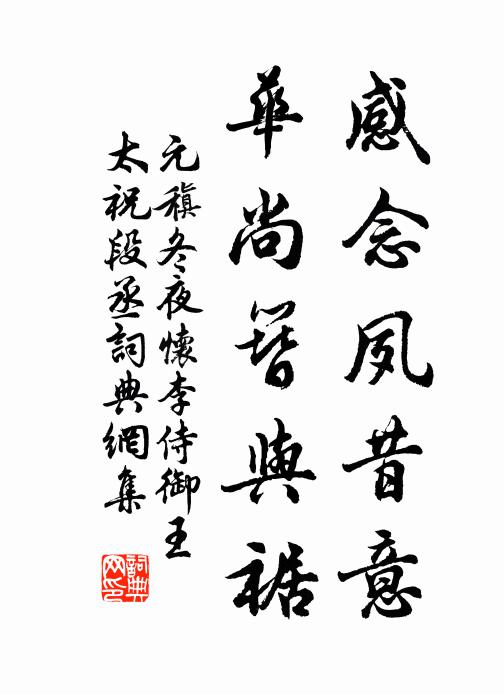 感念夙昔意
華尚簪與裾
元稹冬夜懷李侍御王
太祝段丞詞典網集
詞典網印